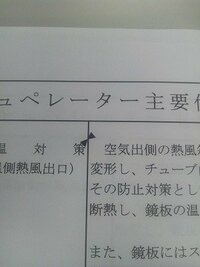 ュペレーター主要
温対策
側熱風出口)
空気出側の熱風
変形し、チューブ
その防止対策とし
断熱し、鏡板の温
また、鏡板にはス